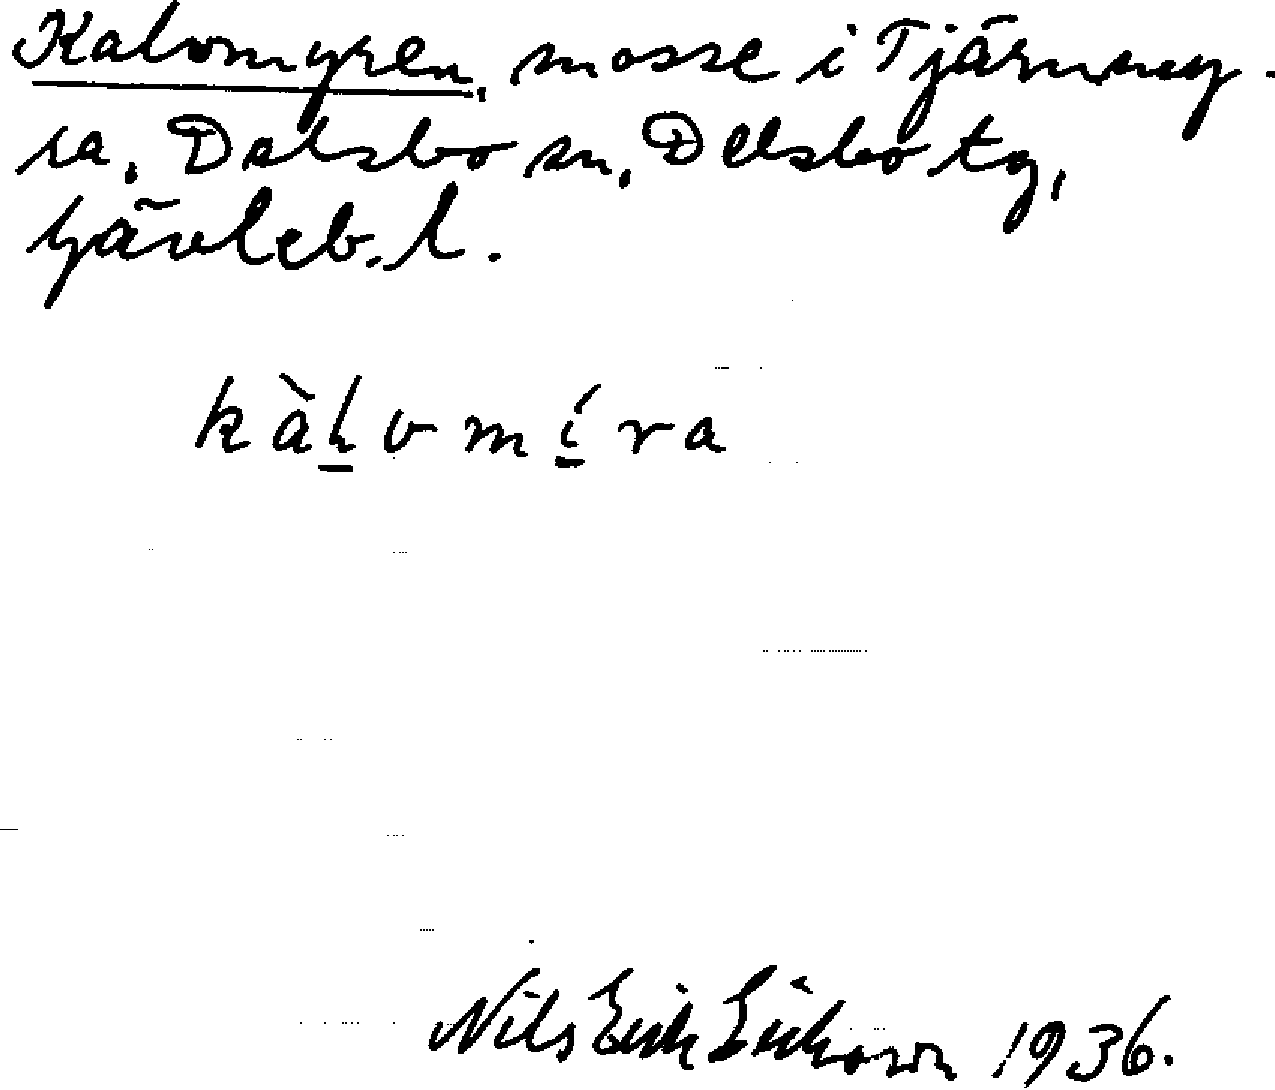 Kalvmyren, mosse i Tjärnmy-
ra, Delsbo sn, Delsbo tg,
Gävleb. l.
kàlvmíra
Nils Erik Erikson 1936.